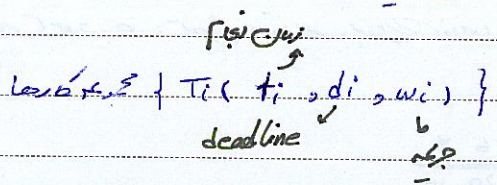 زمان انجام
مجموعه کارها { Ti ( ti , di , wi ) }
deadline
جریمه